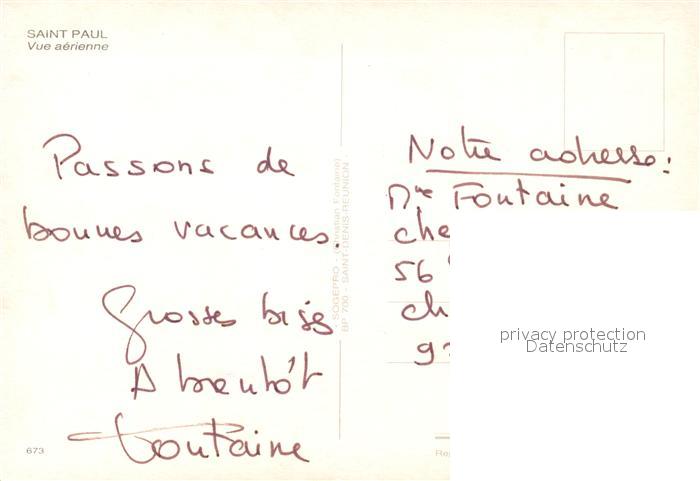 SAINT PAUL
Vue aérienne
Passons de
bonnes vacances.
Grosses bises
A bientôt
Fontaine
SOGEPRO - (Christian Fontaine)
BP 700 - SAINT-DENIS-REUNION
Notre adresse :
Mme Fontaine
che
56
ch
97
privacy protection
Datenschutz
673
Re